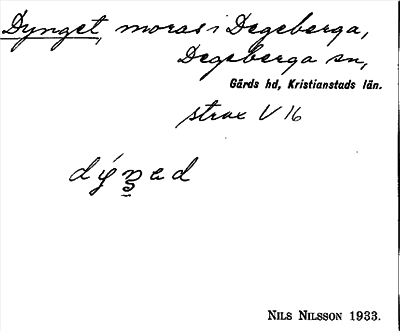 Dynget, moras i Degeberga,
Degeberga sn,
Gärds hd, Kristianstads län.
strax V 16
dýn̰ad
NILS NILSSON 1933.